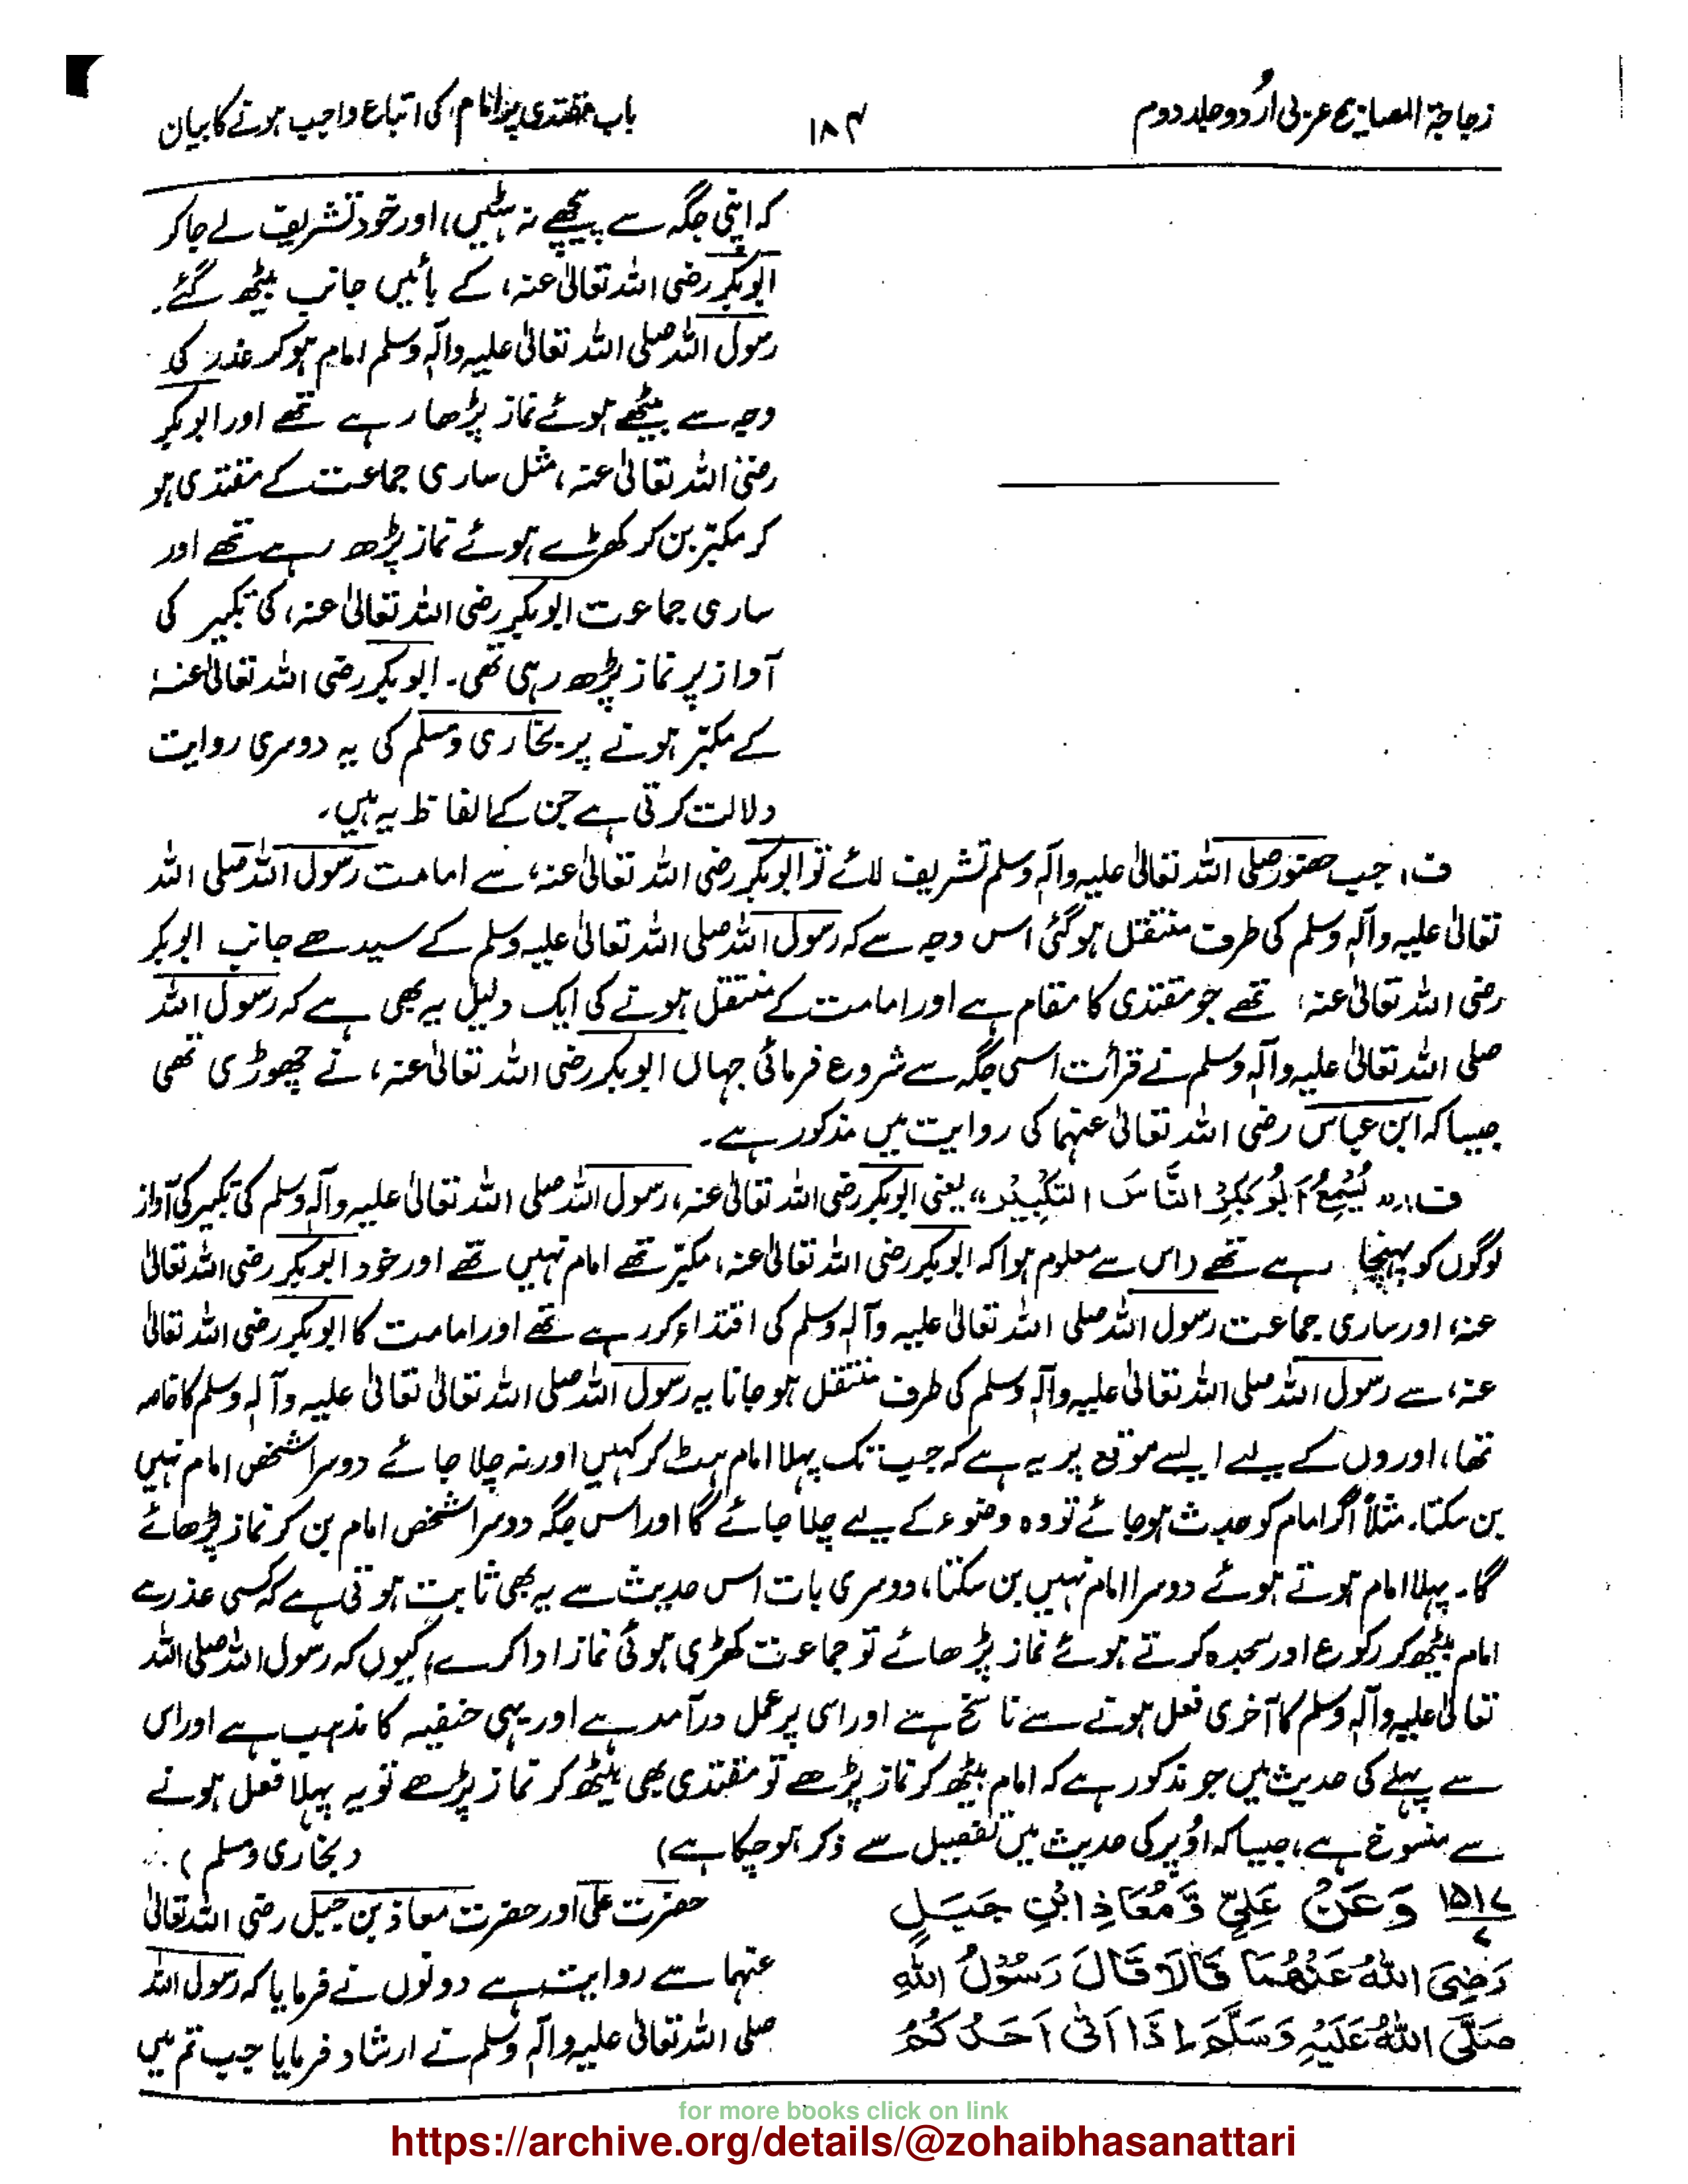 زجاجۃ المصابیح عربی اردو جلد دوم
۱۸۴
باب مقتدی پر امام کی اتباع واجب ہونے کا بیان
کہ اپنی جگہ سے پیچھے نہ ہٹیں، اور خود تشریف لے جا کر
ابوبکر رضی اللہ تعالیٰ عنہ، کے بائیں جانب بیٹھ گئے۔
رسول اللہ صلی اللہ تعالیٰ علیہ وآلہ وسلم امام ہو کر عذر کی
وجہ سے بیٹھے ہوئے نماز پڑھا رہے تھے اور ابوبکر
رضی اللہ تعالیٰ عنہ، مثل ساری جماعت کے مقتدی ہو
کر مکبّر بن کر کھڑے ہوئے نماز پڑھ رہے تھے اور
ساری جماعت ابوبکر رضی اللہ تعالیٰ عنہ، کی تکبیر کی
آواز پر نماز پڑھ رہی تھی۔ ابوبکر رضی اللہ تعالیٰ عنہٗ
کے مکبّر ہونے پر بخاری ومسلم کی یہ دوسری روایت
دلالت کرتی ہے جن کے الفاظ یہ ہیں۔
ف، جب حضور صلی اللہ تعالیٰ علیہ وآلہ وسلم تشریف لائے تو ابوبکر رضی اللہ تعالیٰ عنہ، سے امامت رسول اللہ صلی اللہ
تعالیٰ علیہ وآلہ وسلم کی طرف منتقل ہو گئی اس وجہ سے کہ رسول اللہ صلی اللہ تعالیٰ علیہ وسلم کے سیدھے جانب ابوبکر
رضی اللہ تعالیٰ عنہ، تھے جو مقتدی کا مقام ہے اور امامت کے منتقل ہونے کی ایک دلیل یہ بھی ہے کہ رسول اللہ
صلی اللہ تعالیٰ علیہ وآلہ وسلم نے قرأت اسی جگہ سے شروع فرمائی جہاں ابوبکر رضی اللہ تعالیٰ عنہ، نے چھوڑی تھی
جیسا کہ ابن عباس رضی اللہ تعالیٰ عنہما کی روایت میں مذکور ہے۔
ف،، یُسْمِعُ اَبُوْبَکْرٍ النَّاسَ التَّکْبِیْرَ،، یعنی ابوبکر رضی اللہ تعالیٰ عنہ، رسول اللہ صلی اللہ تعالیٰ علیہ وآلہ وسلم کی تکبیر کی آواز
لوگوں کو پہنچا رہے تھے (اس سے معلوم ہوا کہ ابوبکر رضی اللہ تعالیٰ عنہ، مکبّر تھے امام نہیں تھے اور خود ابوبکر رضی اللہ تعالیٰ
عنہ، اور ساری جماعت رسول اللہ صلی اللہ تعالیٰ علیہ وآلہ وسلم کی اقتداء کر رہے تھے اور امامت کا ابوبکر رضی اللہ تعالیٰ
عنہ، سے رسول اللہ صلی اللہ تعالیٰ علیہ وآلہ وسلم کی طرف منتقل ہو جانا یہ رسول اللہ صلی اللہ تعالیٰ تعالیٰ علیہ وآلہ وسلم کا خاصہ
تھا، اوروں کے لیے ایسے موقع پر یہ ہے کہ جب تک پہلا امام ہٹ کر کہیں اور نہ چلا جائے دوسرا شخص امام نہیں
بن سکتا۔ مثلاً اگر امام کو حدث ہو جائے تو وہ وضوء کے لیے چلا جائے گا اور اس جگہ دوسرا شخص امام بن کر نماز پڑھائے
گا۔ پہلا امام ہوتے ہوئے دوسرا امام نہیں بن سکتا، دوسری بات اس حدیث سے یہ بھی ثابت ہوتی ہے کہ کسی عذر سے
امام بیٹھ کر رکوع اور سجدہ کرتے ہوئے نماز پڑھائے تو جماعت کھڑی ہوئی نماز ادا کرے، کیوں کہ رسول اللہ صلی اللہ
تعالیٰ علیہ وآلہ وسلم کا آخری فعل ہونے سے ناسخ ہے اور اسی پر عمل درآمد ہے اور یہی حنفیہ کا مذہب ہے اور اس
سے پہلے کی حدیث میں جو مذکور ہے کہ امام بیٹھ کر نماز پڑھے تو مقتدی بھی بیٹھ کر نماز پڑھے تو یہ پہلا فعل ہونے
سے منسوخ ہے، جیسا کہ اوُپر کی حدیث میں تفصیل سے ذکر ہو چکا ہے) (بخاری ومسلم)
۱۵۱۷ وَعَنْ عَلِیٍّ وَّمُعَاذِ ابْنِ جَبَلٍ
رَضِیَ اللّٰہُ عَنْهُمَا قَالَا قَالَ رَسُوْلُ اللّٰہِ
صَلَّی اللّٰہُ عَلَیْہِ وَسَلَّمَ اِذَا اَتٰی اَحَدُکُمُ
حضرت علی اور حضرت معاذ بن جبل رضی اللہ تعالیٰ
عنہما سے روایت ہے دونوں نے فرمایا کہ رسول اللہ
صلی اللہ تعالیٰ علیہ وآلہ وسلم نے ارشاد فرمایا جب تم میں
for more books click on link
https://archive.org/details/@zohaibhasanattari